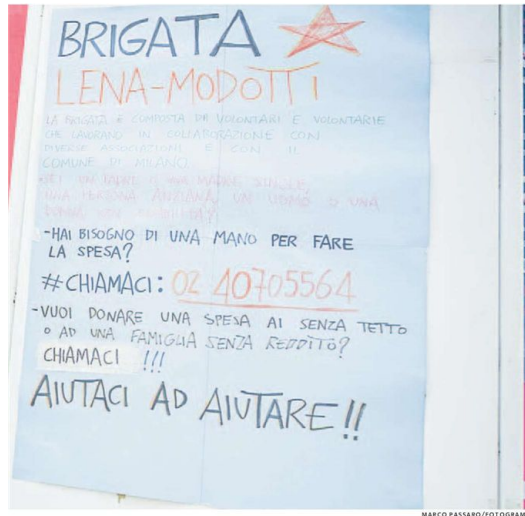 BRIGATA
LENA-MODOTTI
LA BRIGATA È COMPOSTA DA VOLONTARI E VOLONTARIE
CHE LAVORANO IN COLLABORAZIONE CON
DIVERSE ASSOCIAZIONI E CON IL
COMUNE DI MILANO
-SEI UN PADRE O UNA MADRE SINGLE,
UNA PERSONA ANZIANA, UN UOMO O UNA
DONNA CON
-HAI BISOGNO DI UNA MANO PER FARE
LA SPESA?
#CHIAMACI: 02 40705564
-VUOI DONARE UNA SPESA AI SENZA TETTO
O AD UNA FAMIGLIA SENZA REDDITO?
CHIAMACI !!!
AIUTACI AD AIUTARE!!
MARCO PASSARO/FOTOGRAM